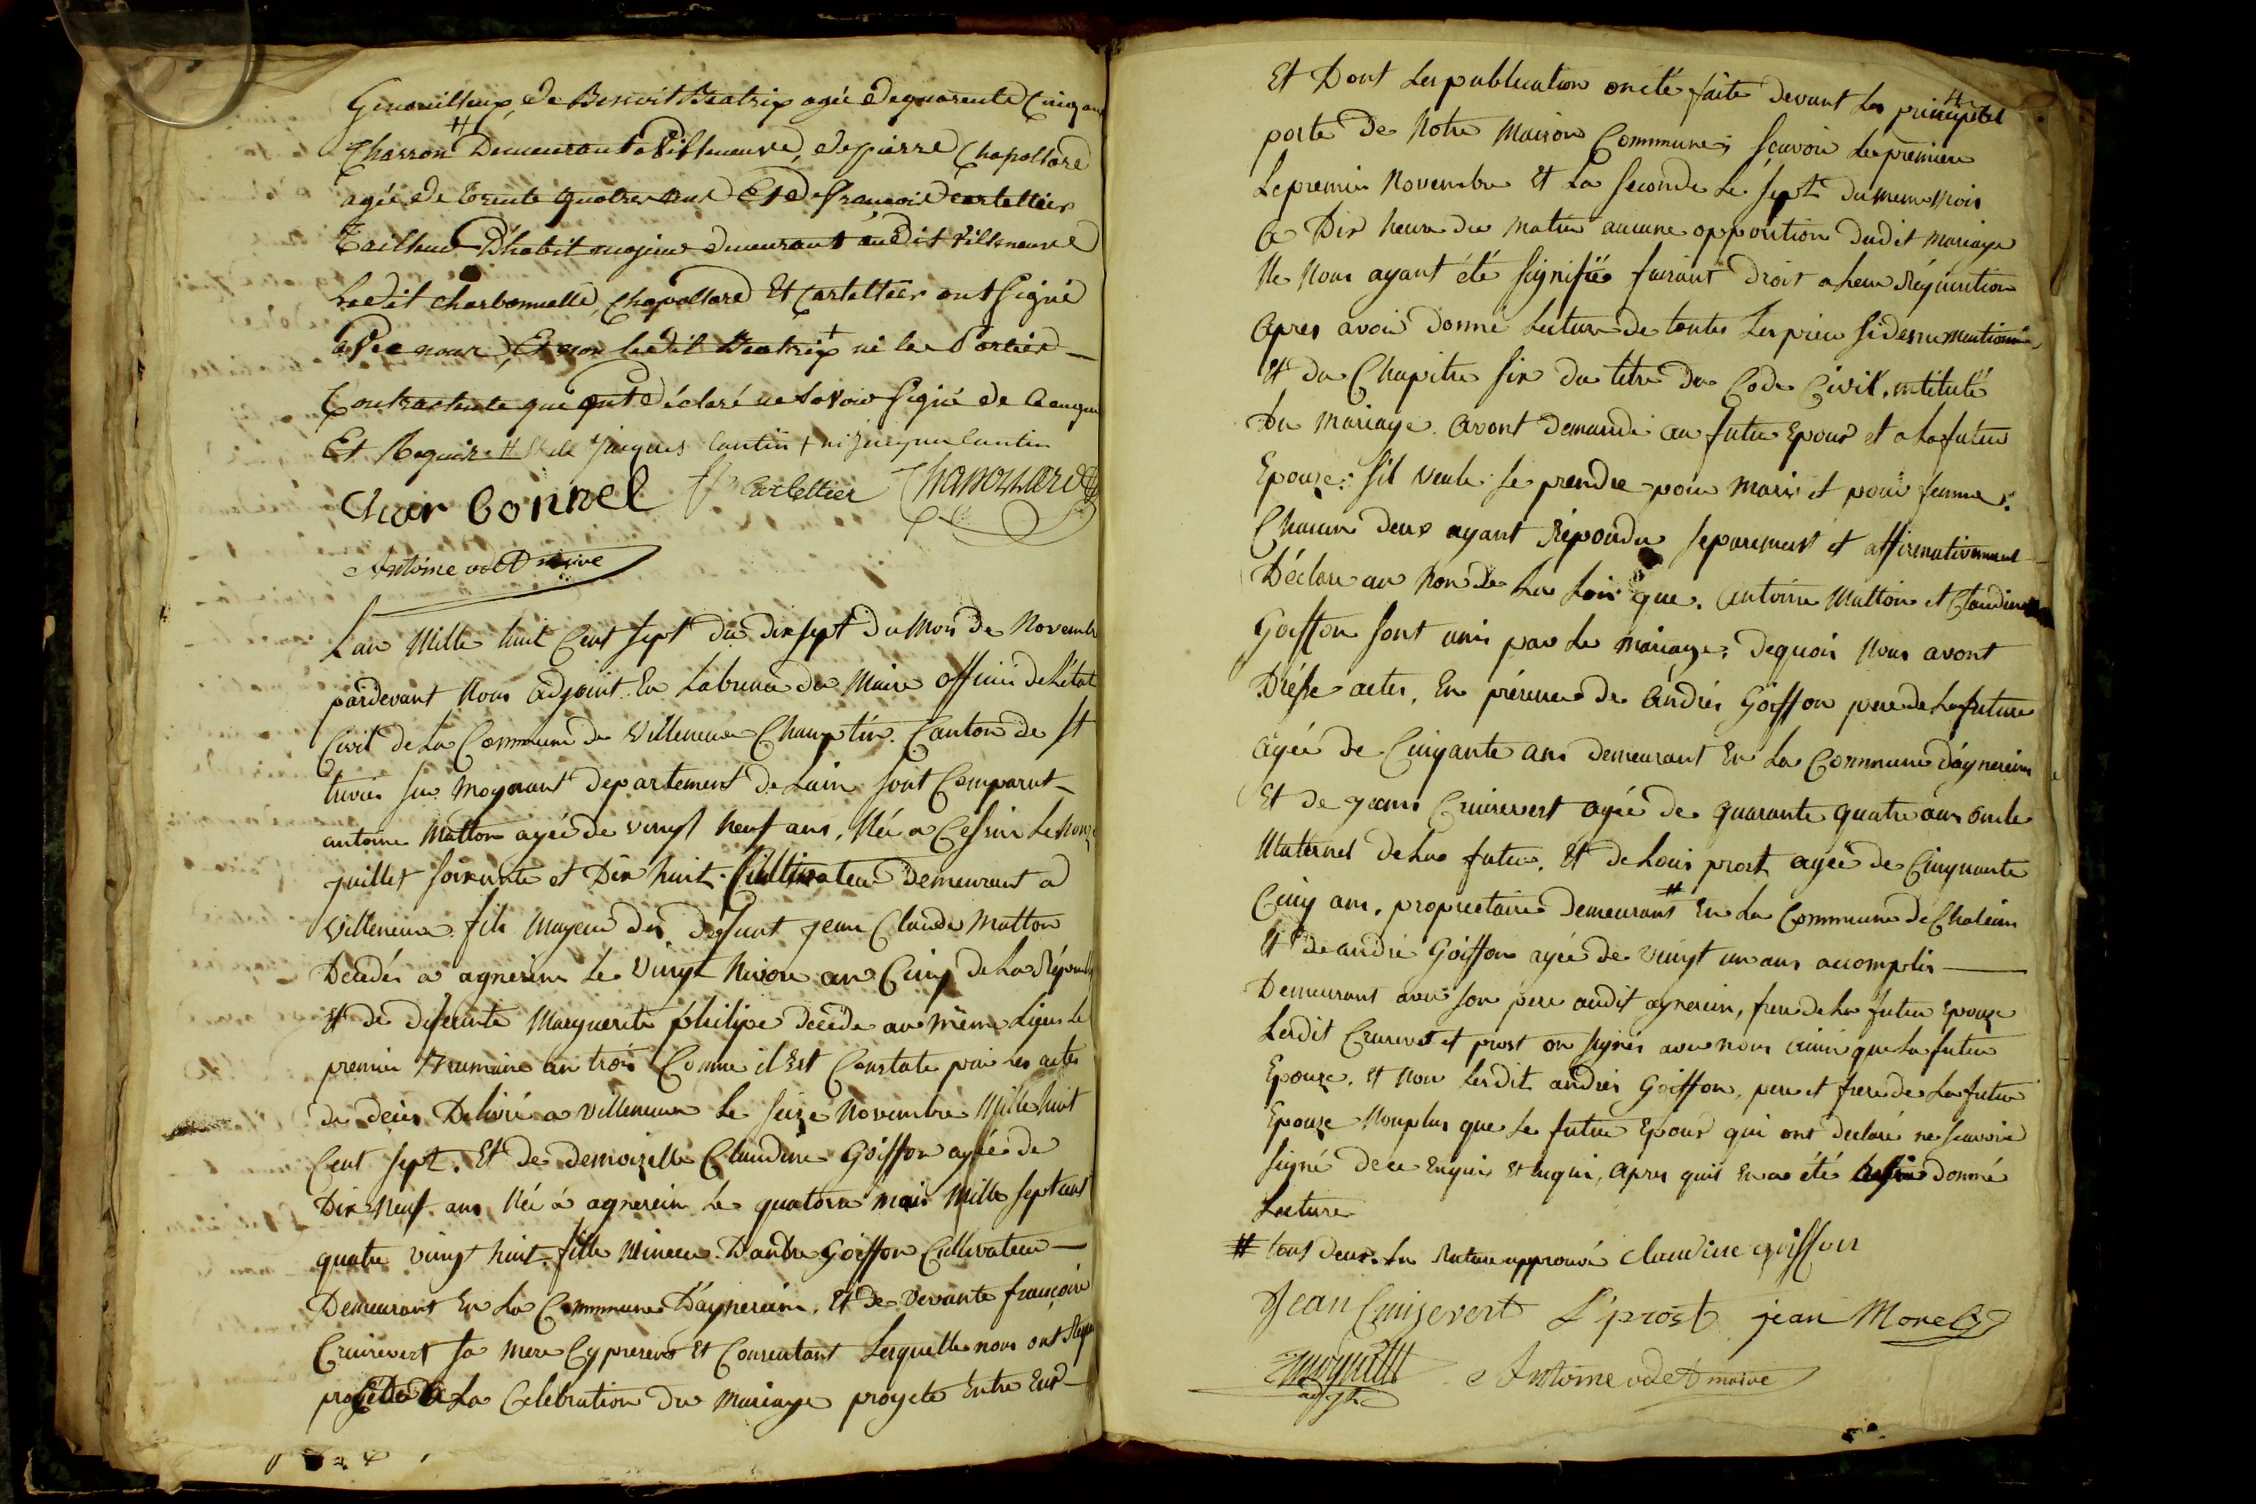 Genouilleux, de Benoit Beatrix agée de quarente Cinq ans
Charron # Demeurant a Villeneuve, de pierre Chapollard
agée de trente quatre ans Et de françois Cartellier
Tailleur D'habit majeur demeurant audit Villeneuve
Ledit Charbonnelle, Chapollard Et Cartellier ont Signé
avec nous, Et non ledit Beatrix + ni les Parties
Contractente que ont déclaré ne Savoir Signé de Ce enquis
Et Requis # Et de Jacques Cantin + ni Jacques Cantin
Char bonnel fr Cartellier Chapollard
Antoine maire
L'an Mille huit Cent sept du dix sept du Mois de Novembre
pardevant Nous adjoint En Labsence du Maire officié de l'état
Civil de La Commune de Villeneuve Champtin. Canton de St
trivier sur Moynant departement de Lain sont Comparut
antoine Matton agée de vingt Neuf ans, Née a Cessein Le
juillet soixante et Dix huit. Cultivateur Demeurant a
Villeneuve fils Mageur de deffunt jean Claude Matton
Decedés a agnerein Le vingt Nivose an Cinq de La Répub
Et de defeunte Marguerite philipe decede au même Lieu Le
premier Brumaire an trois Comme il Est Constate par Les actes
de deces Delivré a Villeneuve Le seize Novembre Mille huit
Cent sept. Et de demoizelle Claudine Goiffon agée de
Dix Neuf ans Née a agnerein Le quatorze mais Mille sept cent
quatre vingt huit fille Mineure D'andre Goiffon Cultivateur
Demeurant En La Commune D'aynereins. Et de vivante françoise
Cruizevert sa Mere Cy presens Et Consentant Lesquelle nous ont Requi
procédé a La Celebration du Mariage projeté Entre Eux
Et Dont Les publication on été faite devant La principal #
porte De Notre Maison Commune; sçavoir La premiere
Le premier Novembre Et La seconde Le sept du meme Mois
a Dix heure du Matin aucune opposition dudit Mariage
Ne Nous ayant été signifiée faisant Droit a Leur Réquisition
apres avoir Donné Lecture de toutes Les piece sidessu mentionné
Et du Chapitre six du titre du Code Civil intitulé
du Mariage. avont demandé au futur Epoux et a La futur
Epouze: s'il veule se prendre pour Maris et pour femme.
Chacun deux ayant Répondu separement et affirmativement
Déclare au Nom de La Loi que. antoine Matton et Claudine
Goiffon sont unis par Le Mariage; dequoi Nous avont
Dréssé actes. En présence de andrée Goiffon pere de La future
agée de Cinqante ans demeurant En La Commune d'aynereins
Et de jean Cruizevert agée de quarante quatre ans oncle
Maternel de La futur. Et de Louis prost agée de Cinquante
Cinq ans. proprietaire demeurant # En La Commune de Chaleins
Et de andré Goiffon agée de vingt un ans acomplis
Demeurant avec son pere audit agnerein, frere de La futur Epouze
Lesdit Cruizevert et prost on signés avec nous ainsi que La futur
Epouze. Et Non Lesdit andrées Goiffon, pere et frere de La futur
Epouze Nonplus que Le futur Epoux qui ont declaré ne scavoir
signé de ce Enquis Et Requi, apres qu'is En a été donné
Lecture
# tous deux. La Rature approuvé claudine goiffon
Jean Cruizevert L. prost jean Morel
adjt Antoine maire